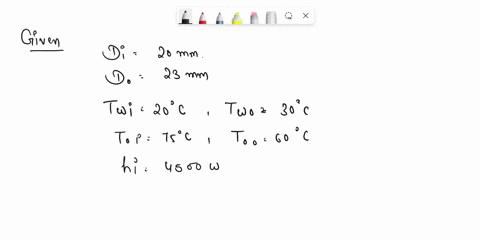 Given
Di = 20 mm.
Do = 23 mm
Twi = 20°C , Two = 30°C
Toi = 75°C , Too = 60°C
hi = 4500 W